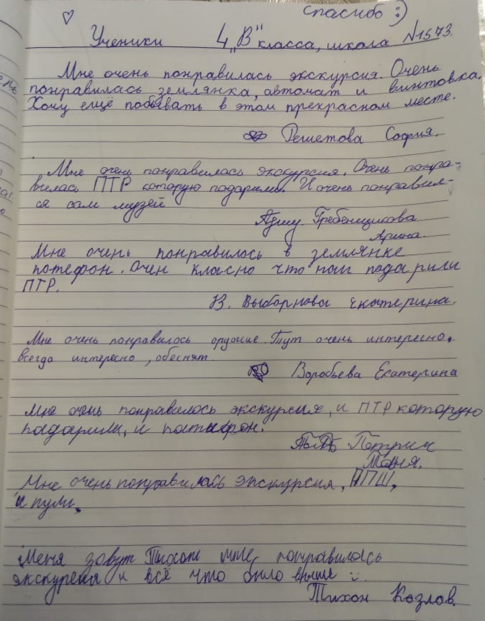 спасибо :)
Ученики 4 „В" класса, школа №1573.
Мне очень понравилась экскурсия. Очень
понравилась землянка, автомат и винтовка.
Хочу ещё побывать в этом прекрасном месте.
Решетова София.
Мне очень понравилась экскурсия. Очень понра-
вилась ПТР которую подарили. И очень понравил-
ся сам музей
Гребенщикова
Арина.
Мне очень понравилось в землянке
потефон. Очен класно что нам подарили
ПТР.
Выборнова Екатерина.
Мне очень понравилось оружие. Тут очень интересно,
всегда интересно, обеснят.
Воробьёва Екатерина
Мне очень понравилось экскурсия, и ПТР которую
подарили, и патифон.
Петрин
Мне очень понравилась экскурсия, ППШ,
и пули.
Меня зовут Тихон мне понравилась
экскурсия и всё что было выше :
Тихон Козлов.